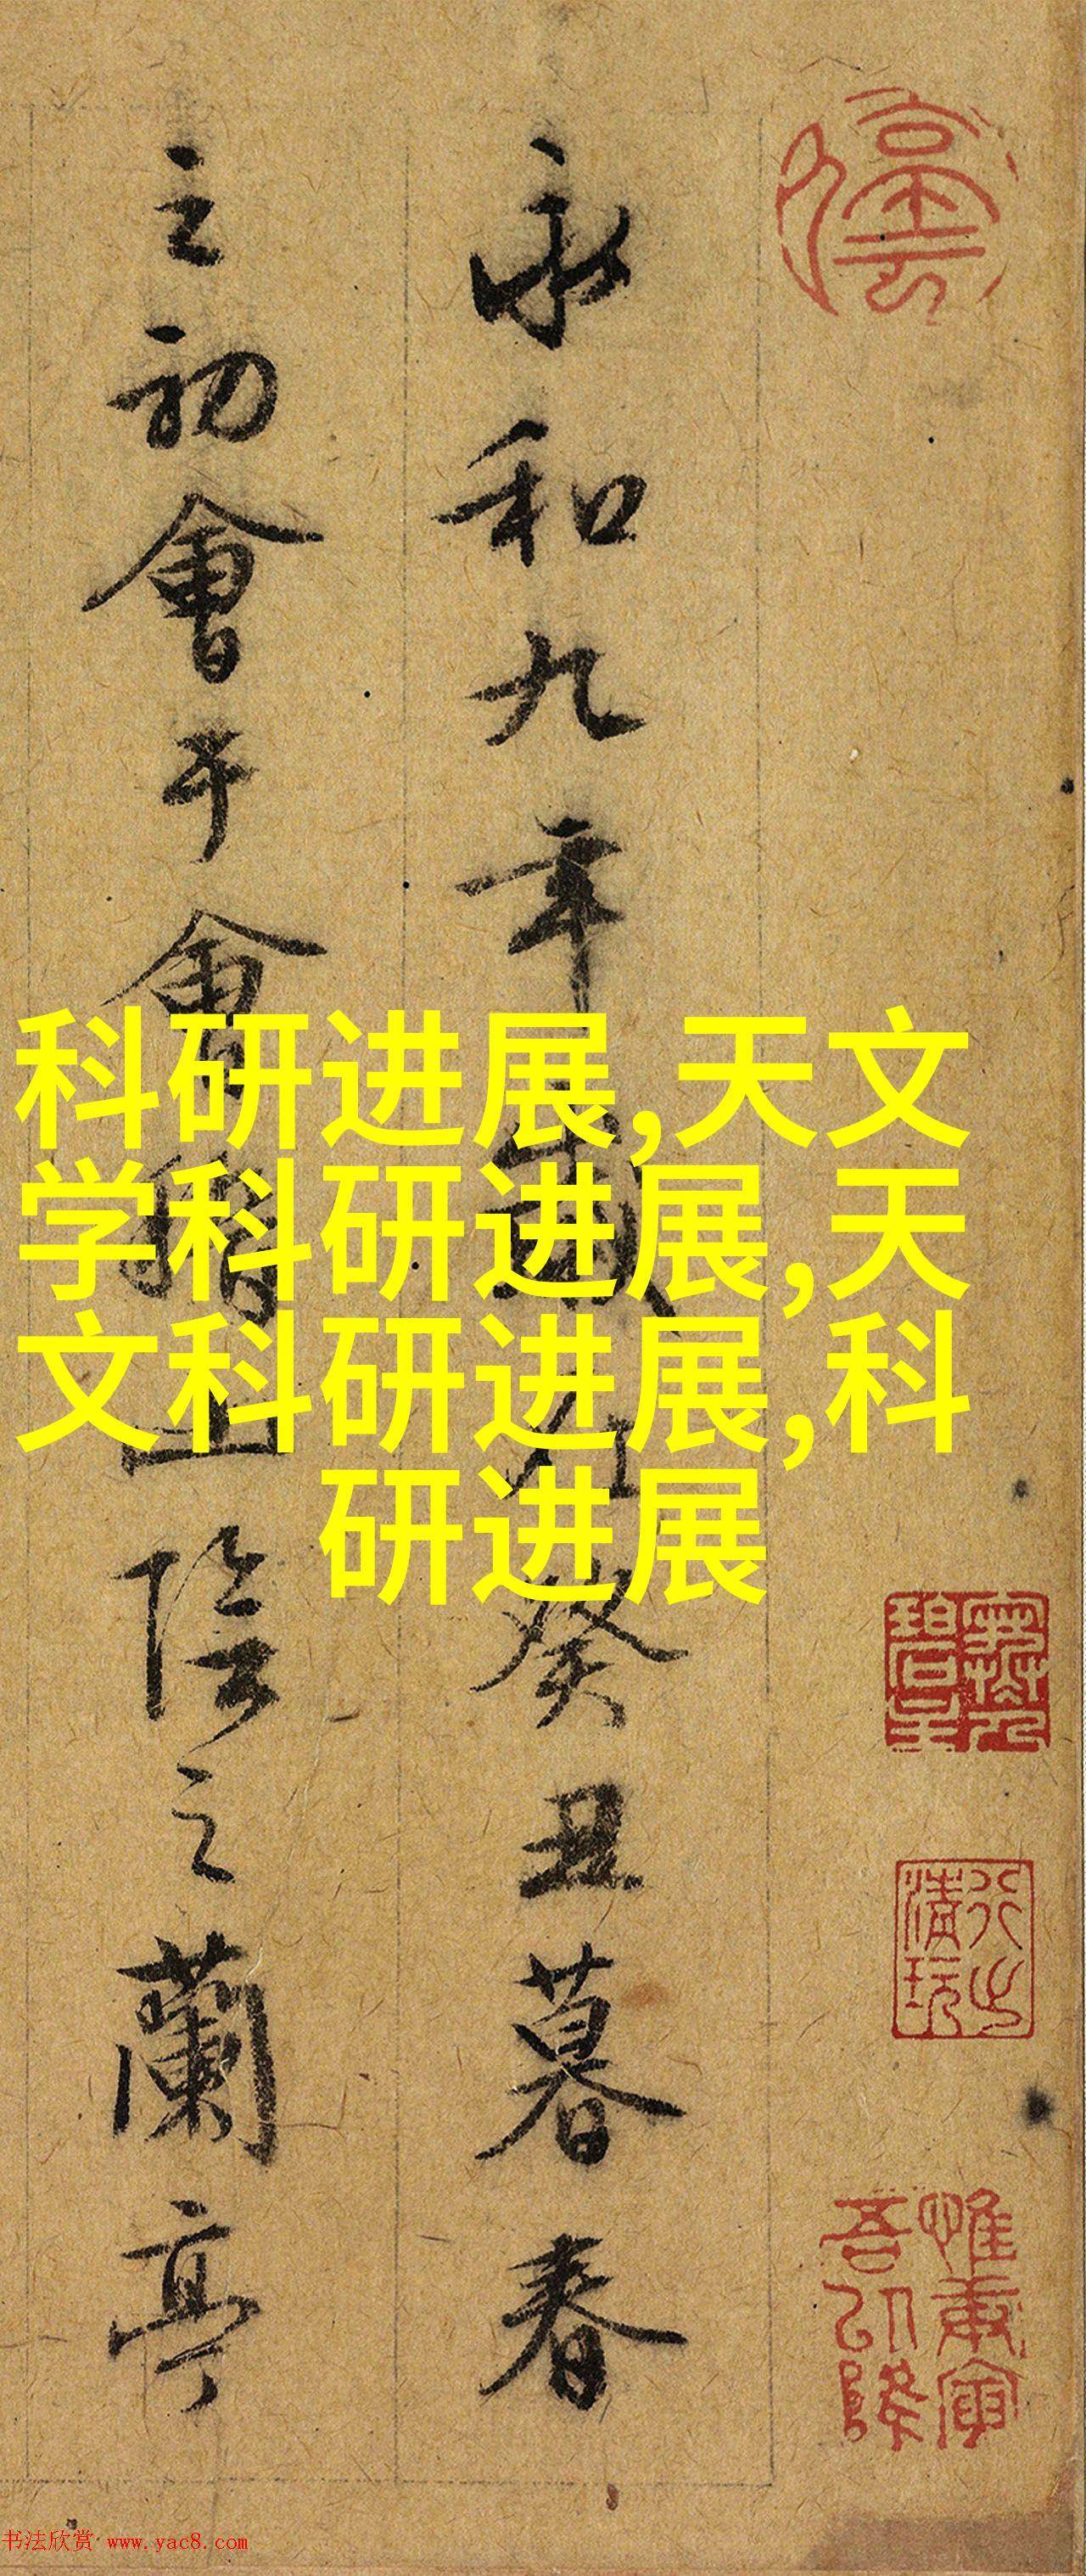 永和九年歲在癸丑暮春
之初會于會稽山陰之蘭亭
科研进展,天文
学科研进展,天
文科研进展,科
研进展
惟庚寅吾以降
书法欣赏 www.yac8.com